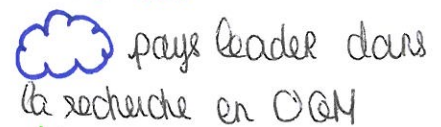 pays leader dans
la recherche en OGM